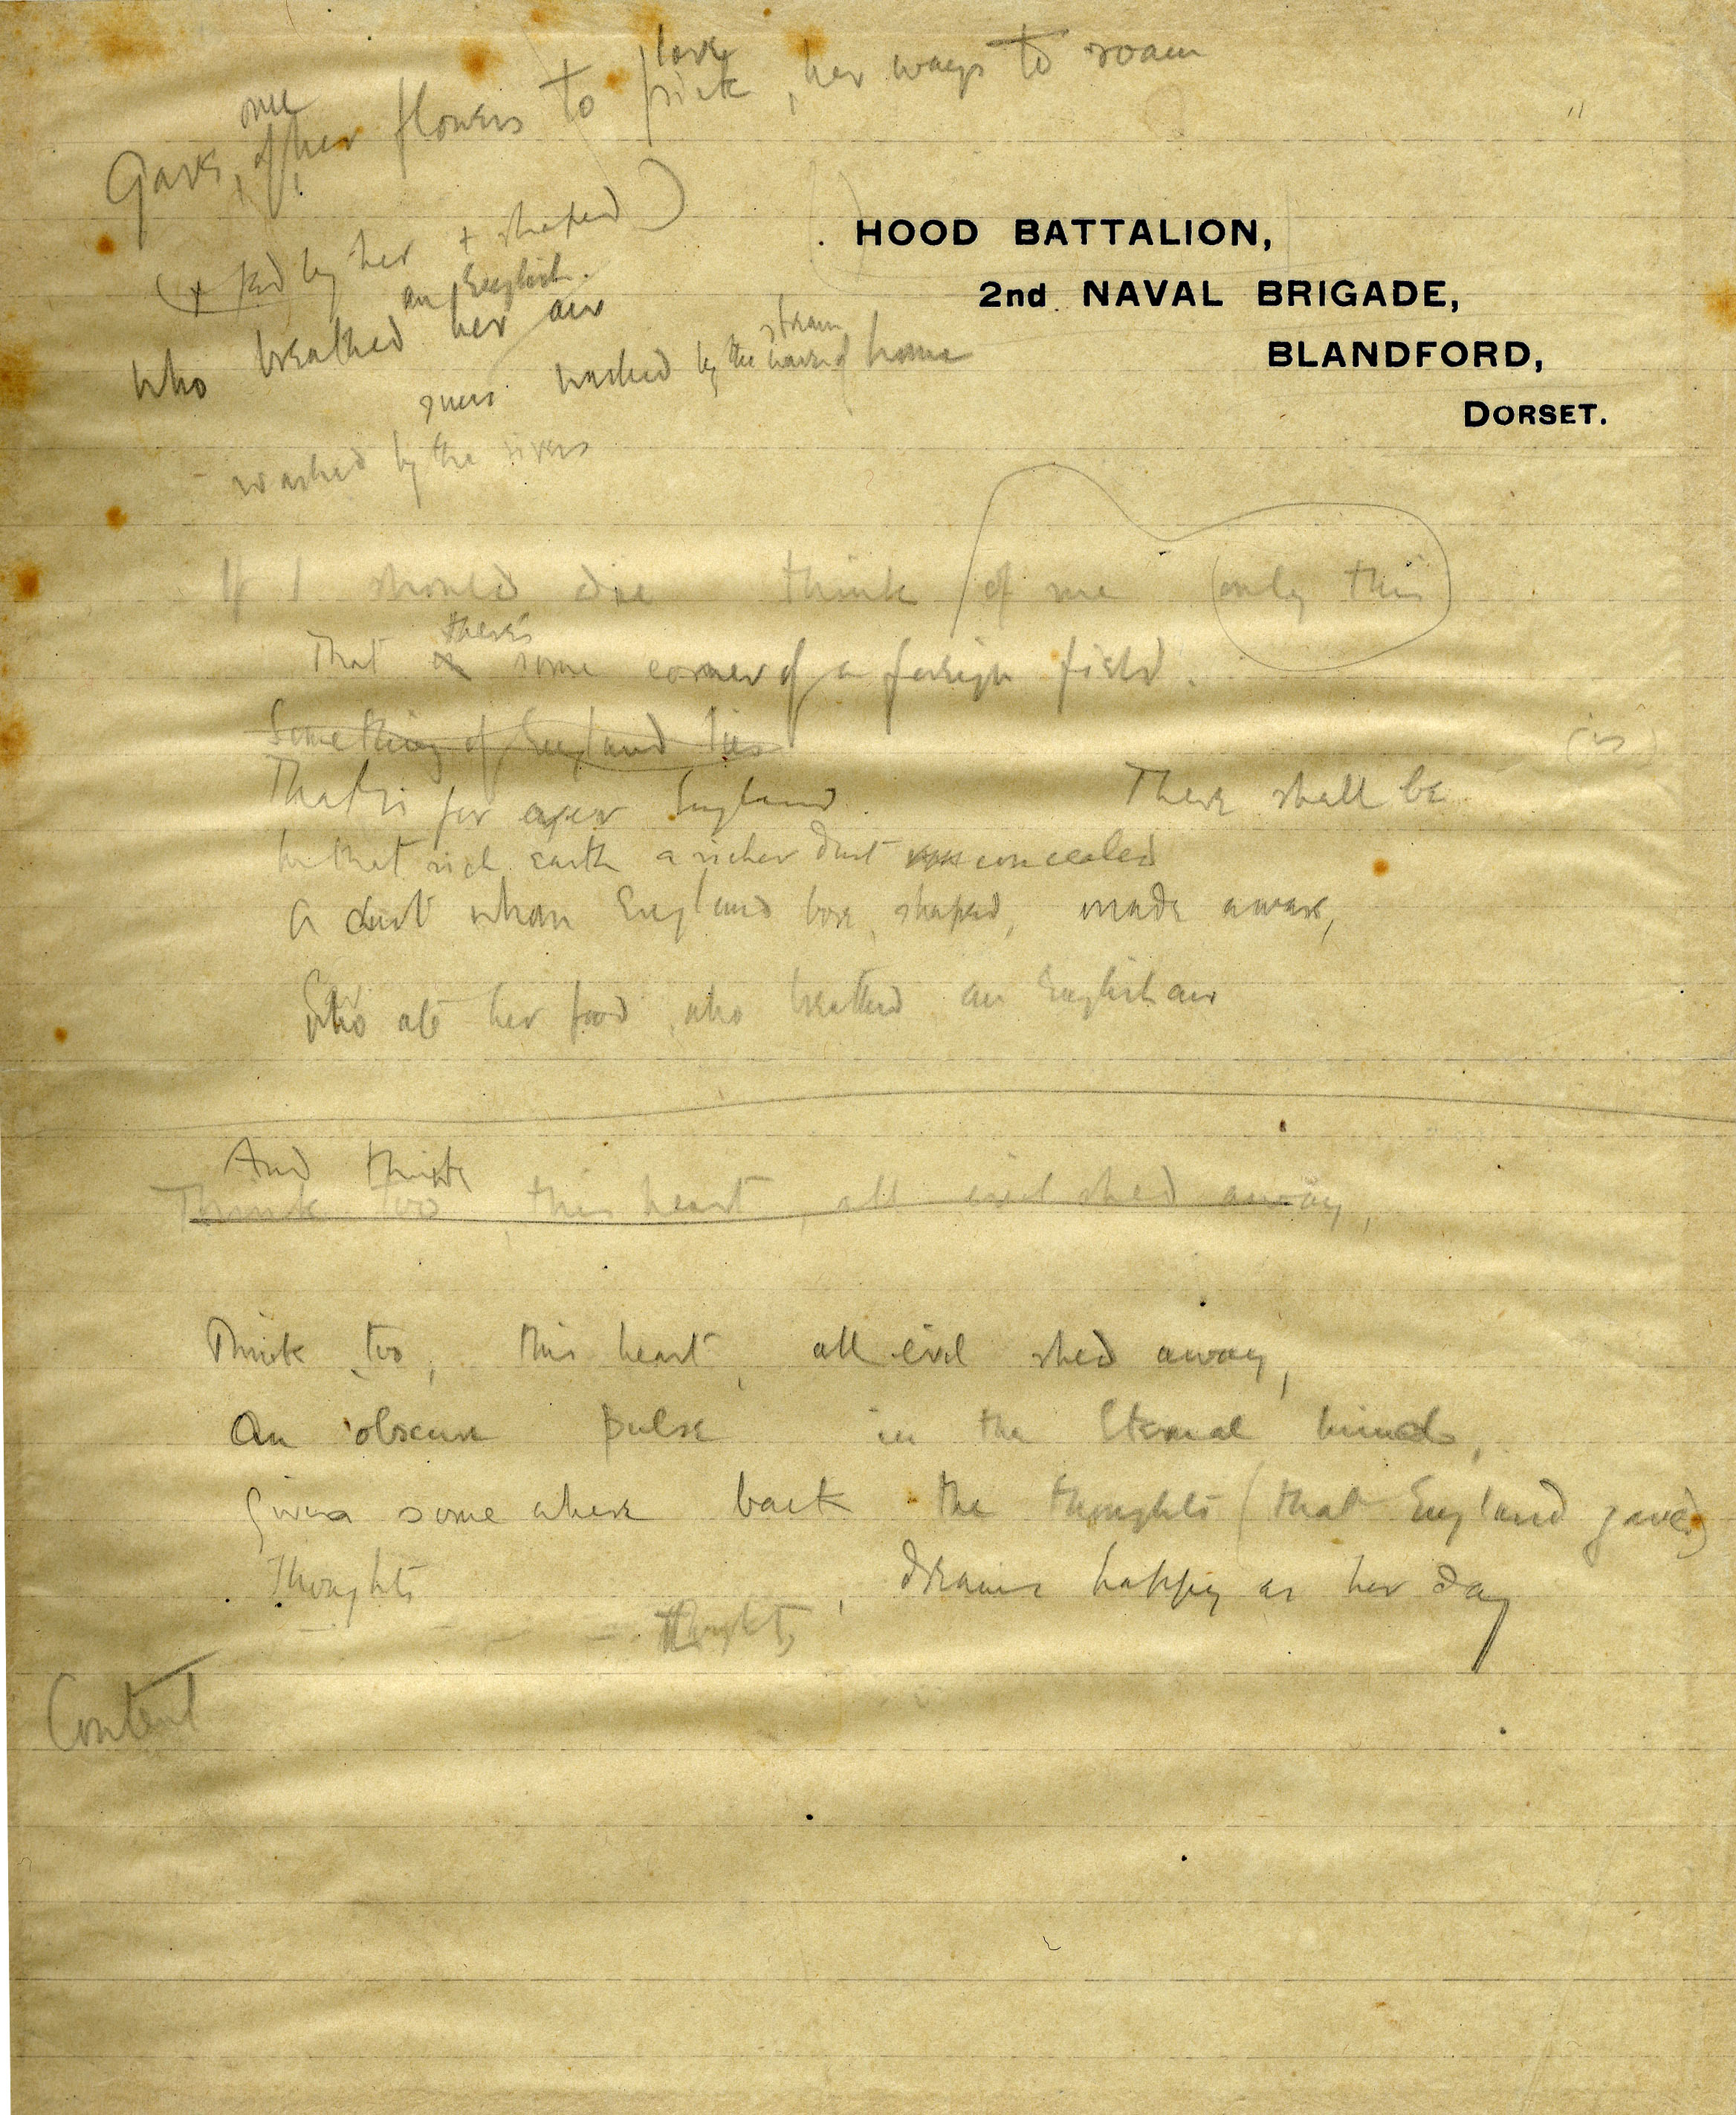 love
Gave, me of her flowers to pick, her ways to roam
( + fed by her + shaped )
an English
who breathed her air
stream
suns washed by the wave of home
washed by the rivers
HOOD BATTALION,
2nd NAVAL BRIGADE,
BLANDFORD,
DORSET.
If I should die think of me only this
there's
That some corner of a foreign field.
Something of England lies
(is)
That is for ever England. There shall be
In that rich earth a richer dust concealed
A dust whom England bore, shaped, made aware,
Who ate her food, who breathed an English air
And think
Think too, this heart, all evil shed away,
Think too, this heart, all evil shed away,
An obscure pulse in the Eternal mind,
Gives somewhere back the thoughts (that England gave)
Thoughts , dreams happy as her day
thoughts
Content